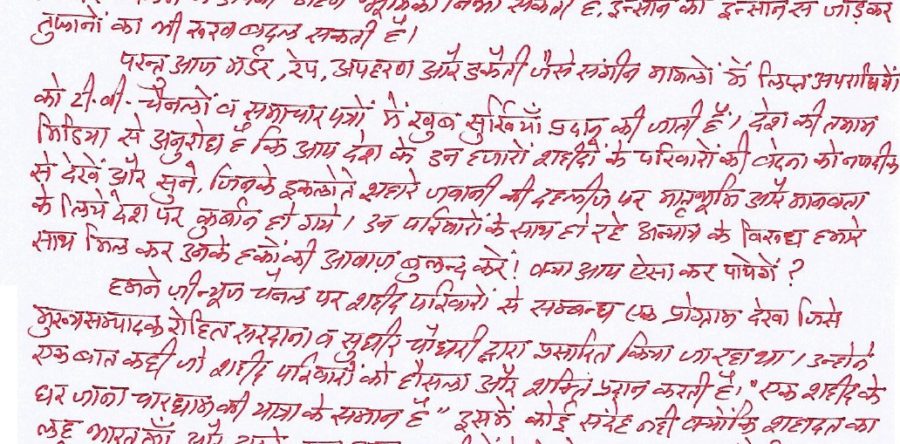 सकती है, इन्सान को इन्सान से जोड़कर
तुफानों का भी रूख बदल सकती है।
परन्तु आज मर्डर, रेप, अपहरण और डकैती जैसे संगीन मामलों में लिप्त अपराधियों
को टी.वी. चैनलों व समाचार पत्रों में खुब सुर्खियाँ प्रदान की जाती हैं। देश की तमाम
मिडिया से अनुरोध है कि आप देश के उन हजारों शहीदों के परिवारों की वेदना को नजदीक
से देखें और सुने, जिनके इकलौते सहारे जवानी की दहलीज पर मातृभूमि और मानवता
के लिये देश पर कुर्बान हो गये। उन परिवारों के साथ हो रहे अन्याय के विरूध हमारे
साथ मिल कर उनके हकों की आवाज़ बुलन्द करें! क्या आप ऐसा कर पायेगें ?
हमने ज़ी न्यूज चैनल पर शहीद परिवारों से सम्बन्ध एक प्रोग्राम देखा जिसे
मुख्य सम्पादक रोहित सरदाना व सुधीर चौधरी द्वारा प्रसारित किया जा रहा था। उन्होने
एक बात कही जो शहीद परिवारों को हौसला और शक्ति प्रदान करती है। "एक शहीद के
घर जाना चारधाम की यात्रा के समान है" इसमें कोई संदेह नही क्योंकि शहादत का
लहू भारत माँ और